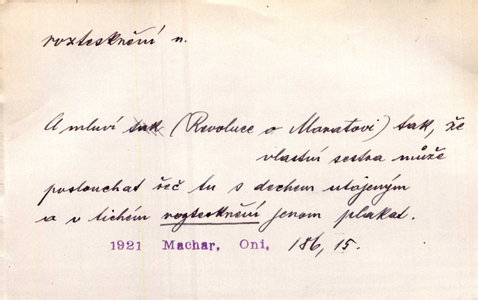 roztesknění n.
A mluví tak (Revoluce o Maratovi) tak, že
vlastní sestra může
poslouchat řeč tu s dechem utajeným
a v tichém roztesknění jenom plakat.
1921 Machar, Oni, 186, 15.